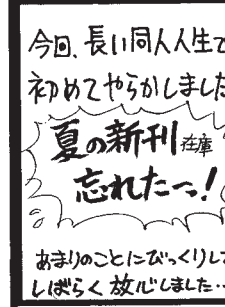 今回、長い同人人生で
初めてやらかしました
夏の新刊在庫
忘れたーっ!
あまりのことにびっくりして
しばらく放心しました…